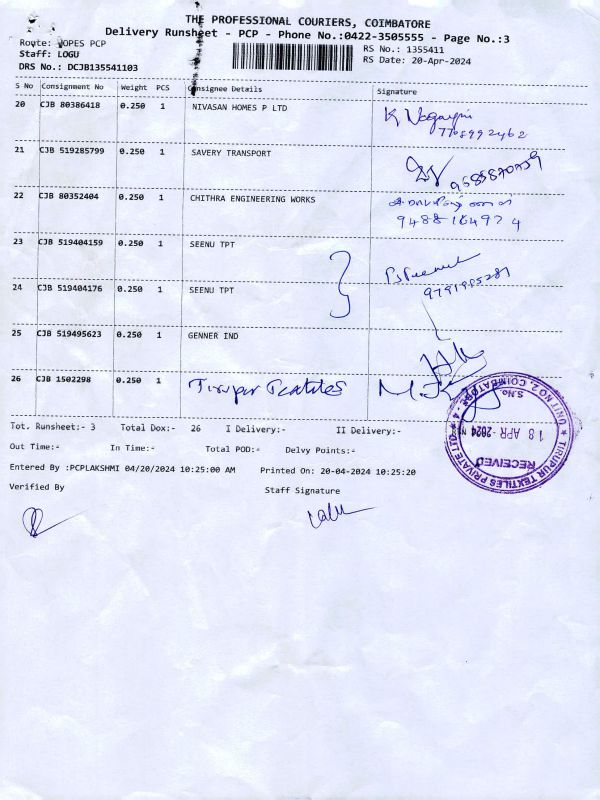 THE PROFESSIONAL COURIERS, COIMBATORE
Delivery Runsheet - PCP - Phone No.:0422-3505555 - Page No.:3
Route: HOPES PCP
RS No.: 1355411
Staff: LOGU
RS Date: 20-Apr-2024
DRS No.: DCJB135541103
S No Consignment No Weight PCS Consignee Details Signature
20 CJB 80386418 0.250 1 NIVASAN HOMES P LTD
7708992462
21 CJB 519285799 0.250 1 SAVERY TRANSPORT
22 CJB 80352404 0.250 1 CHITHRA ENGINEERING WORKS
23 CJB 519404159 0.250 1 SEENU TPT
24 CJB 519404176 0.250 1 SEENU TPT
25 CJB 519495623 0.250 1 GENNER IND
26 CJB 1502298 0.250 1 Tirupur Textiles
Tot. Runsheet:- 3 Total Dox:- 26 I Delivery:- II Delivery:-
Out Time:- In Time:- Total POD:- Delvy Points:-
Entered By :PCPLAKSHMI 04/20/2024 10:25:00 AM Printed On: 20-04-2024 10:25:20
Verified By Staff Signature
★ TIRUPUR TEXTILES PRIVATE LTD ★
UNIT NO2, COIMBATORE - 4
RECEIVED
18 APR 2024
S.No.